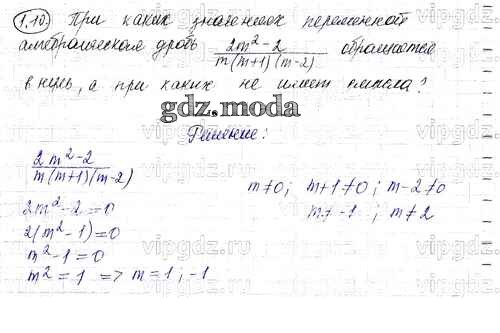 1.10. При каких значениях переменной
алгебраическая дробь (2m² - 2)/(m(m+1)(m-2)) обращается
в нуль, а при каких не имеет смысла?
gdz.moda
Решение:
(2m² - 2)/(m(m+1)(m-2))
m≠0; m+1≠0; m-2≠0
2m² - 2 = 0
m≠-1; m≠2
2(m² - 1) = 0
m² - 1 = 0
m² = 1 => m = 1; -1
vipgdz.com